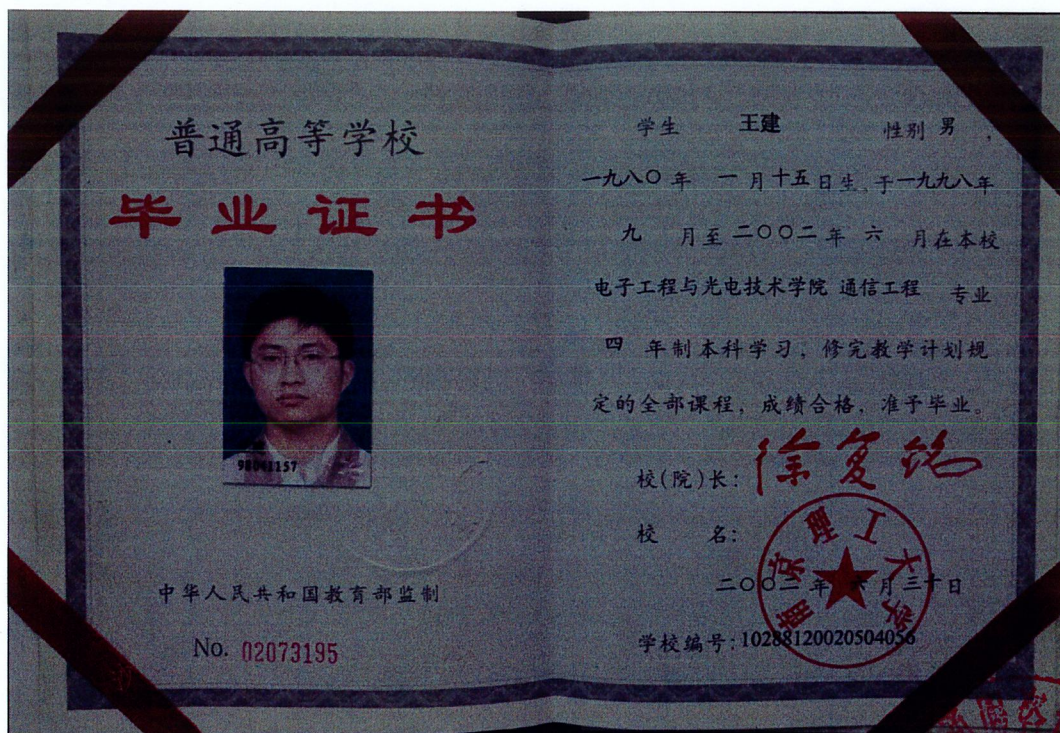 普通高等学校
毕业证书
98041157
中华人民共和国教育部监制
No. 02073195
学生 王建 性别 男,
一九八〇年 一月十五日生,于一九九八年
九 月至二〇〇二年 六 月在本校
电子工程与光电技术学院 通信工程 专业
四 年制本科学习,修完教学计划规
定的全部课程,成绩合格,准予毕业。
校(院)长: 徐复铭
校 名:
南京理工大学
二〇〇二年 六月三十日
学校编号:10288120020504056